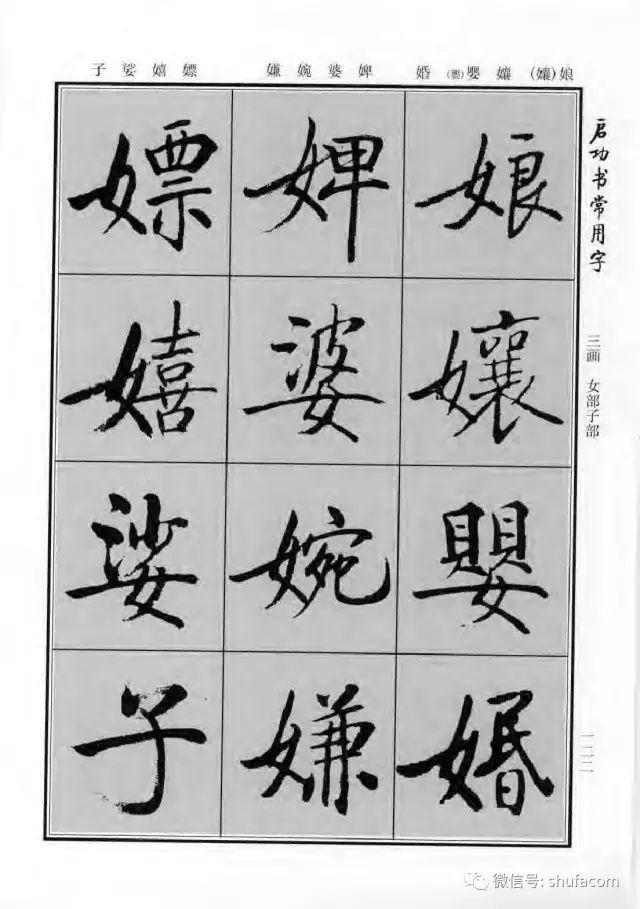 子娑嬉嫖 嫌婉婆婢 婚(嬰)嬰孃(孃)娘
启功书常用字
三画 女部子部
一二二
娘
孃
嬰
婚
婢
婆
婉
嫌
嫖
嬉
娑
子
微信号: shufacom